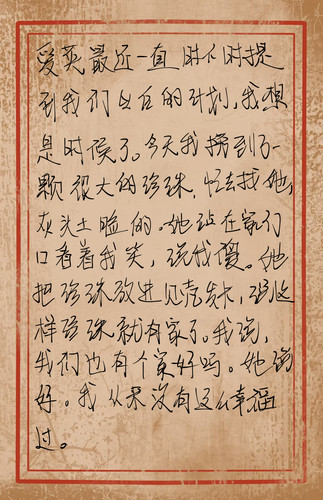 爱英最近一直时不时提
到我们以后的计划,我想
是时候了。今天我捞到了一
颗很大的珍珠,忙去找她,
灰头土脸的。她站在家门
口看着我笑,说我傻。她
把珍珠放进贝壳去,说这
样珍珠就有家了。我说,
我们也有个家好吗。她说
好。我从来没有这么幸福
过。